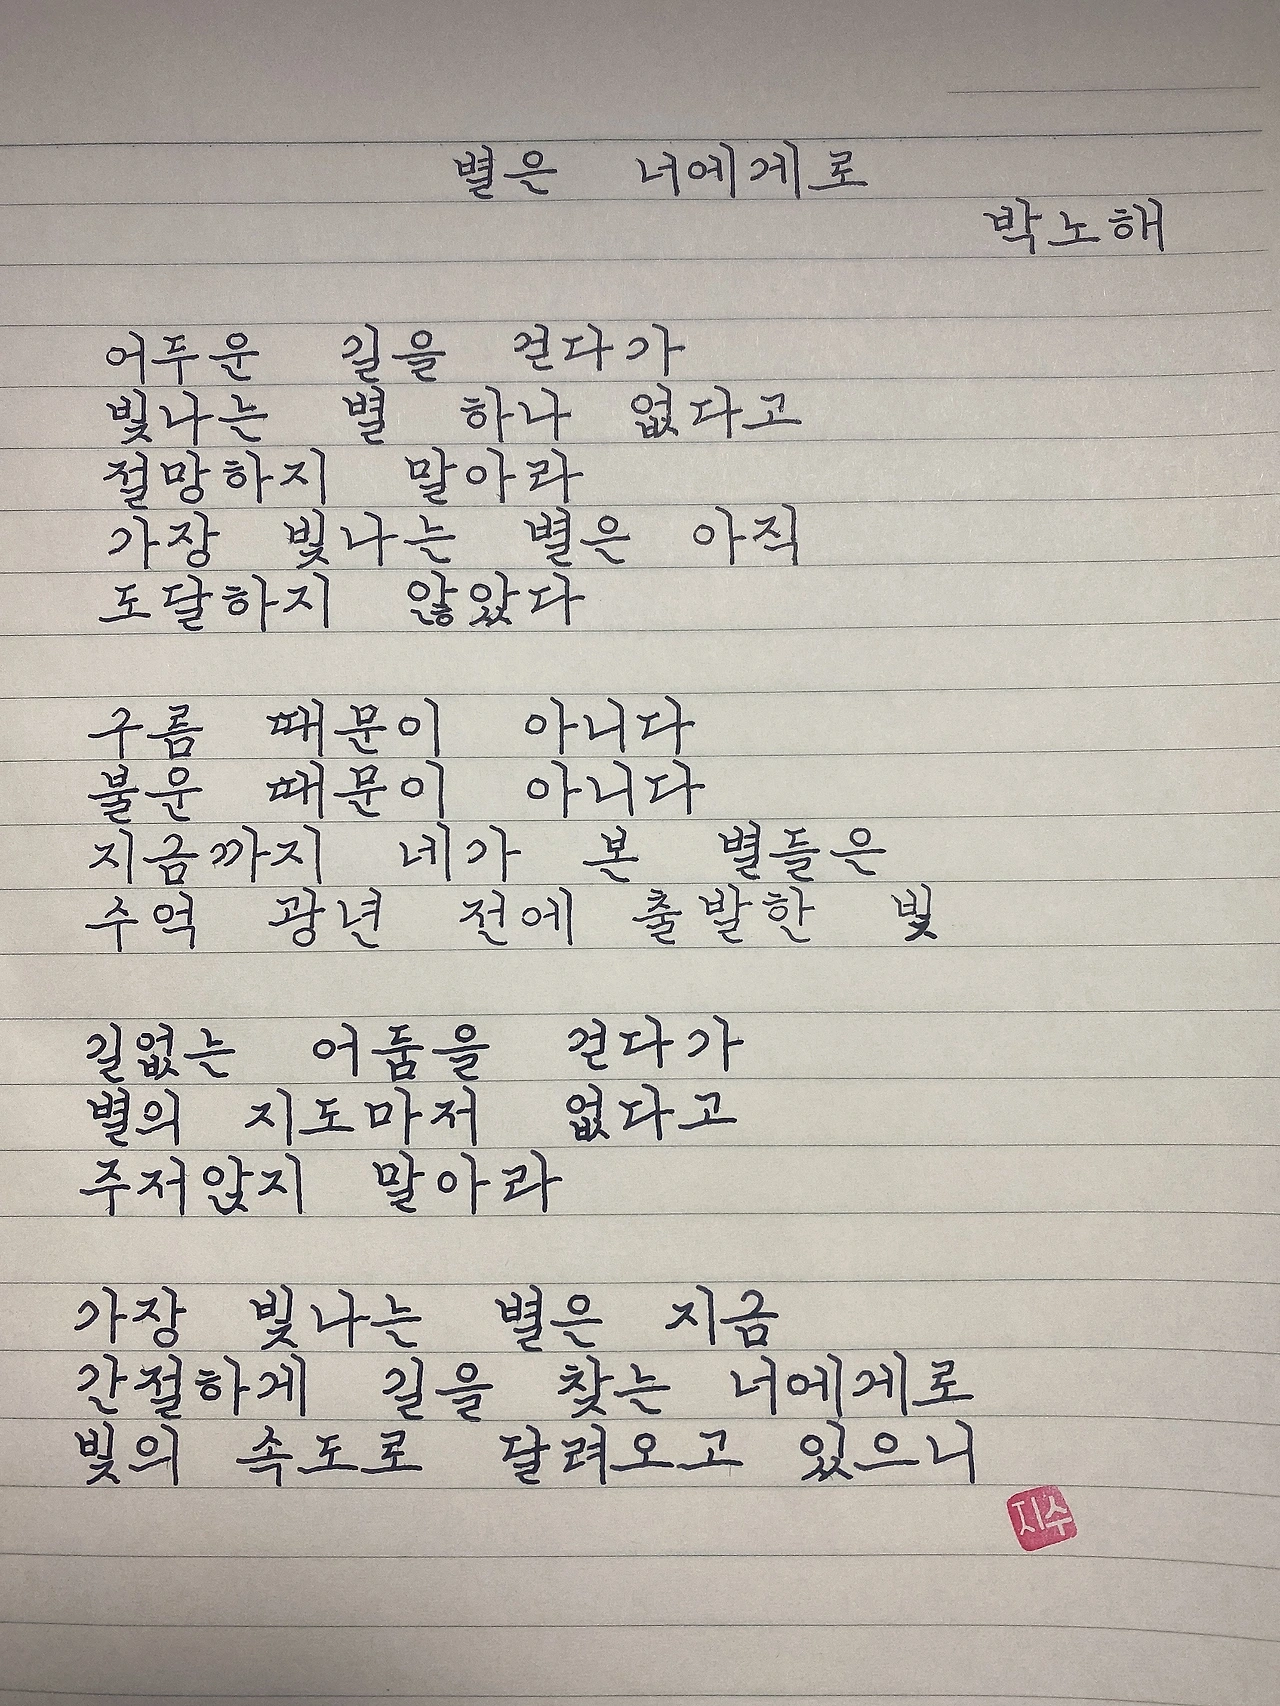 별은 너에게로
박노해
어두운 길을 걷다가
빛나는 별 하나 없다고
절망하지 말아라
가장 빛나는 별은 아직
도달하지 않았다
구름 때문이 아니다
불운 때문이 아니다
지금까지 네가 본 별들은
수억 광년 전에 출발한 빛
길없는 어둠을 걷다가
별의 지도마저 없다고
주저앉지 말아라
가장 빛나는 별은 지금
간절하게 길을 찾는 너에게로
빛의 속도로 달려오고 있으니
지수